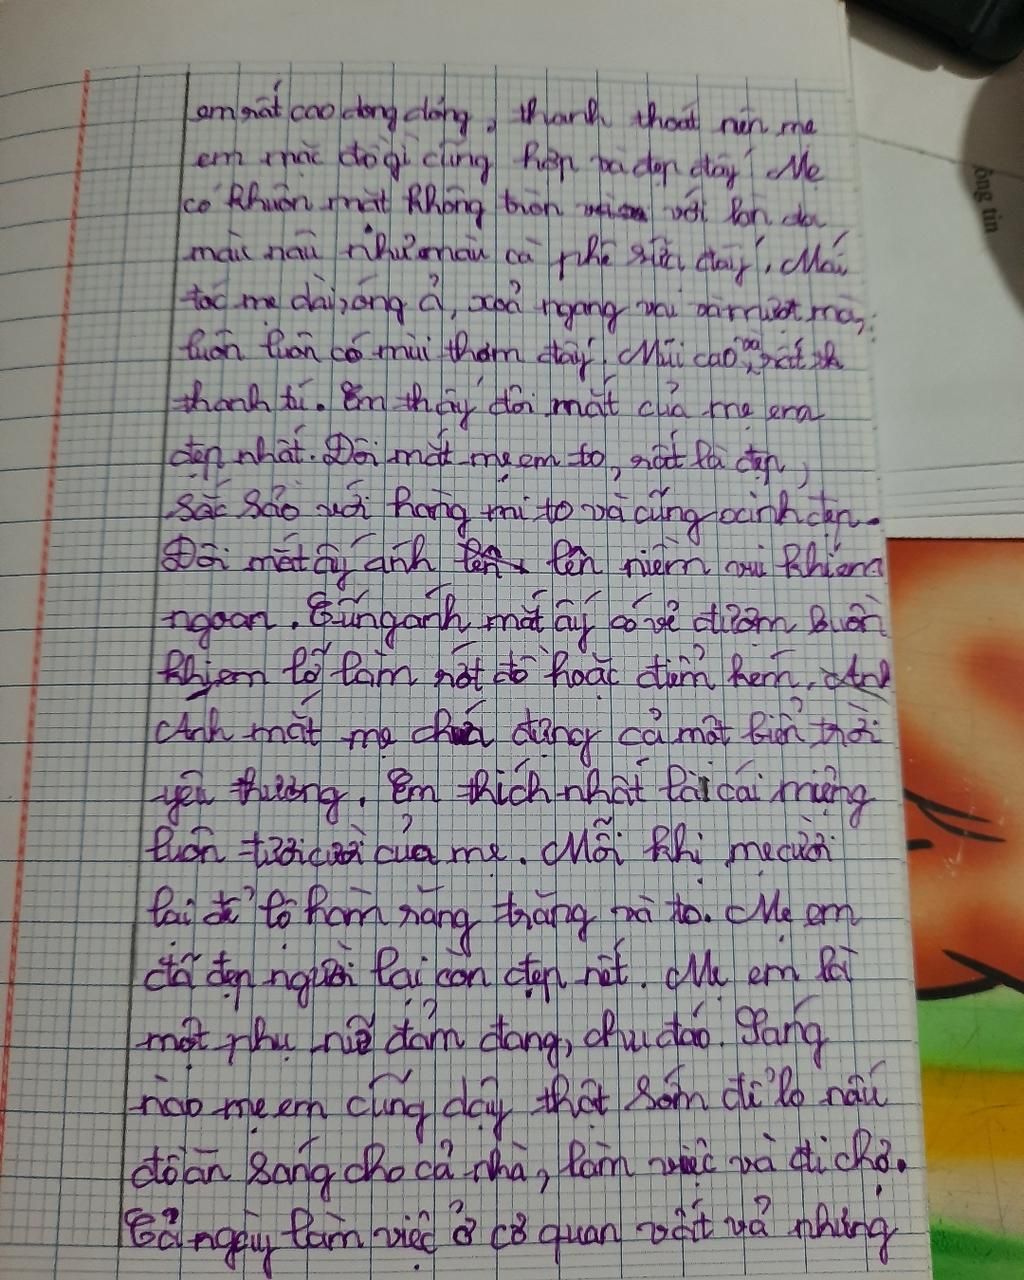 em rất cao dong dỏng, thanh thoát nên mẹ
em mặc đồ gì cũng hợp và đẹp đấy. Mẹ
có khuôn mặt không tròn với làn da
màu nâu như màu cà phê sữa đấy. Mái
tóc mẹ dài, óng ả, xoả ngang vai và mượt mà,
luôn luôn có mùi thơm đấy. Mũi cao và rất th
thanh tú. Em thấy đôi mắt của mẹ em
đẹp nhất. Đôi mắt mẹ em to, rất là đẹp,
sắc sảo với hàng mi to và cũng xinh đẹp.
Đôi mắt ấy ánh lên lên niềm vui khi em
ngoan. Cũng ánh mắt ấy có vẻ đượm buồn
khi em lỡ làm rớt đồ hoặc điểm kém. Anh
Ánh mắt mẹ chứa đựng cả một biển trời
yêu thương. Em thích nhất là cái miệng
luôn tươi cười của mẹ. Mỗi khi mẹ cười
lại để lộ hàm răng trắng và to. Mẹ em
đã đẹp người lại còn đẹp nết. Mẹ em là
một phụ nữ đảm đang, chu đáo. Sáng
nào mẹ em cũng dậy thật sớm để lo nấu
đồ ăn sáng cho cả nhà, làm việc và đi chợ.
Cả ngày làm việc ở cơ quan vất vả nhưng
ông tin